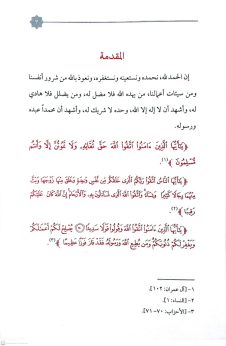 المقدمة
إن الحمد لله، نحمده ونستعينه ونستغفره، ونعوذ بالله من شرور أنفسنا
ومن سيئات أعمالنا، من يهده الله فلا مضل له، ومن يضلل فلا هادي
له، وأشهد أن لا إله إلا الله، وحده لا شريك له، وأشهد أن محمداً عبده
ورسوله.
﴿يَا أَيُّهَا الَّذِينَ آمَنُوا اتَّقُوا اللَّهَ حَقَّ تُقَاتِهِ وَلَا تَمُوتُنَّ إِلَّا وَأَنتُم
مُّسْلِمُونَ﴾ (١).
﴿يَا أَيُّهَا النَّاسُ اتَّقُوا رَبَّكُمُ الَّذِي خَلَقَكُم مِّن نَّفْسٍ وَاحِدَةٍ وَخَلَقَ مِنْهَا زَوْجَهَا وَبَثَّ
مِنْهُمَا رِجَالًا كَثِيرًا وَنِسَاءً وَاتَّقُوا اللَّهَ الَّذِي تَسَاءَلُونَ بِهِ وَالْأَرْحَامَ إِنَّ اللَّهَ كَانَ عَلَيْكُمْ
رَقِيبًا﴾ (٢).
﴿يَا أَيُّهَا الَّذِينَ آمَنُوا اتَّقُوا اللَّهَ وَقُولُوا قَوْلًا سَدِيدًا ۝ يُصْلِحْ لَكُمْ أَعْمَالَكُمْ
وَيَغْفِرْ لَكُمْ ذُنُوبَكُمْ وَمَن يُطِعِ اللَّهَ وَرَسُولَهُ فَقَدْ فَازَ فَوْزًا عَظِيمًا﴾ (٣).
١ - [آل عمران: ١٠٢].
٢ - [النساء: ١].
٣ - [الأحزاب: ٧٠-٧١].